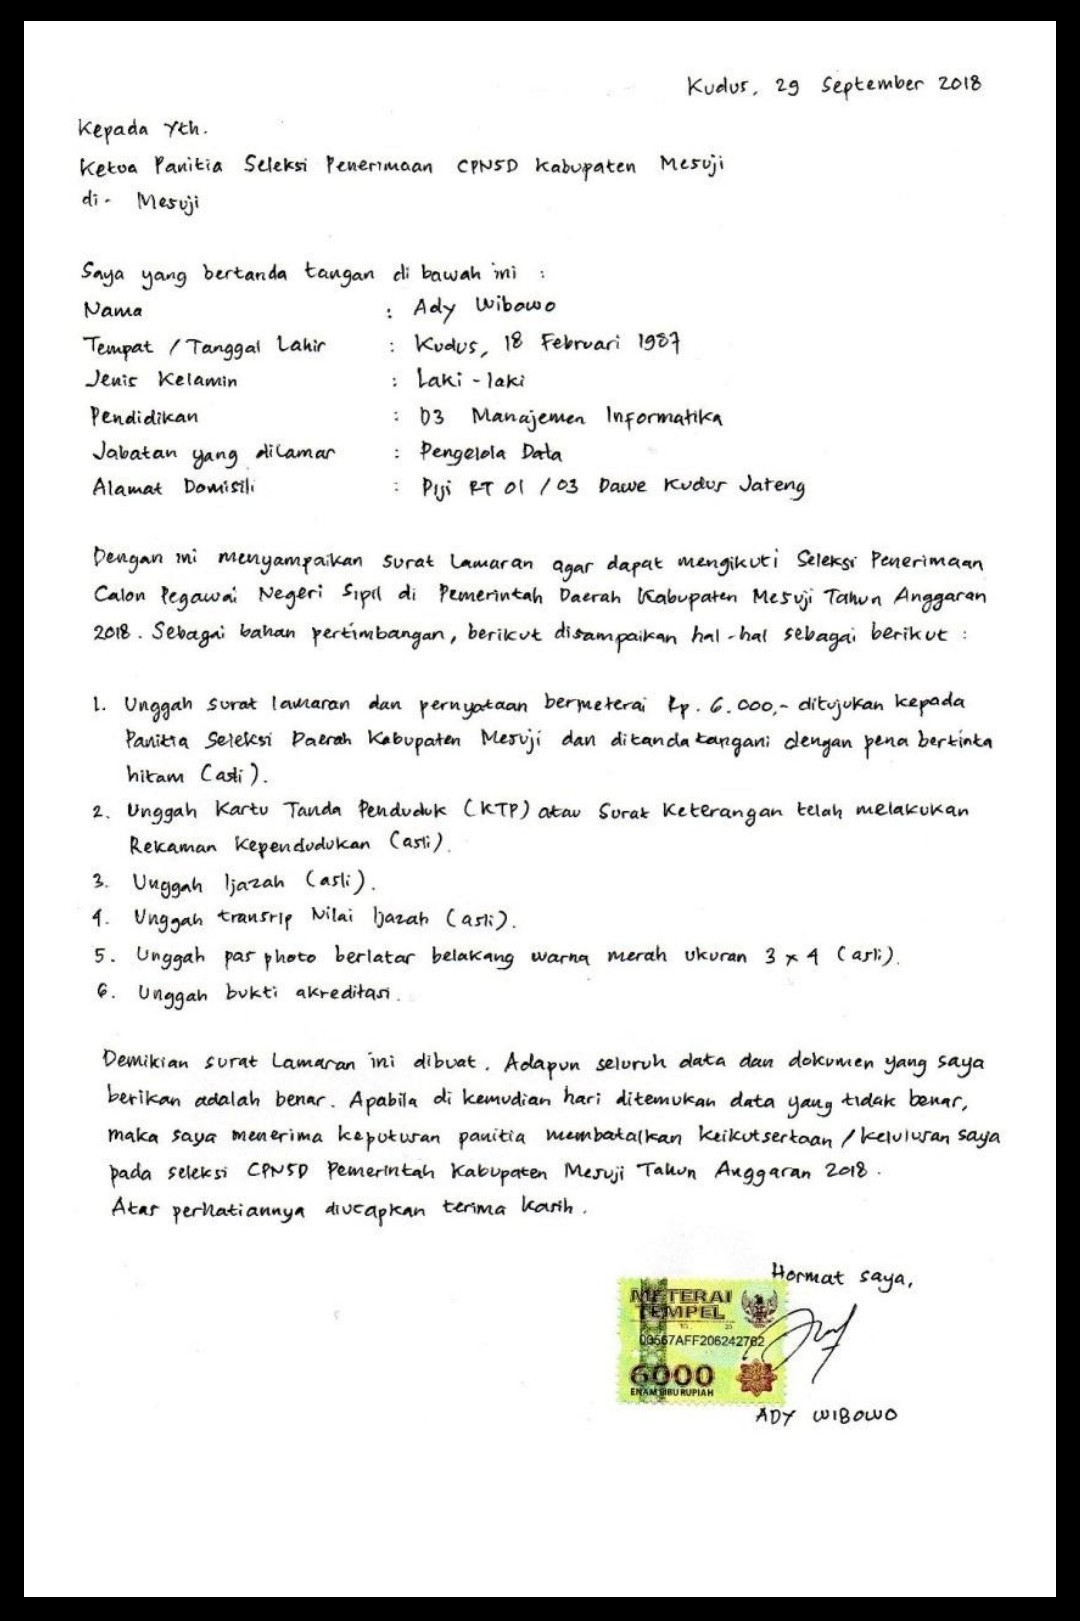 Kudus, 29 September 2018
Kepada Yth.
Ketua Panitia Seleksi Penerimaan CPNSD Kabupaten Mesuji
di - Mesuji
Saya yang bertanda tangan di bawah ini :
Nama : Ady Wibowo
Tempat / Tanggal Lahir : Kudus, 18 Februari 1987
Jenis Kelamin : Laki - laki
Pendidikan : D3 Manajemen Informatika
Jabatan yang dilamar : Pengelola Data
Alamat Domisili : Piji RT 01 / 03 Dawe Kudus Jateng
Dengan ini menyampaikan surat lamaran agar dapat mengikuti Seleksi Penerimaan
Calon Pegawai Negeri Sipil di Pemerintah Daerah Kabupaten Mesuji Tahun Anggaran
2018. Sebagai bahan pertimbangan, berikut disampaikan hal-hal sebagai berikut :
1. Unggah surat lamaran dan pernyataan bermeterai Rp. 6.000,- ditujukan kepada
Panitia Seleksi Daerah Kabupaten Mesuji dan ditanda tangani dengan pena bertinta
hitam (asli).
2. Unggah Kartu Tanda Penduduk (KTP) atau Surat Keterangan telah melakukan
Rekaman Kependudukan (asli).
3. Unggah Ijazah (asli).
4. Unggah transrip Nilai Ijazah (asli).
5. Unggah pas photo berlatar belakang warna merah ukuran 3 x 4 (asli).
6. Unggah bukti akreditasi.
Demikian surat lamaran ini dibuat. Adapun seluruh data dan dokumen yang saya
berikan adalah benar. Apabila di kemudian hari ditemukan data yang tidak benar,
maka saya menerima keputusan panitia membatalkan keikutsertaan / kelulusan saya
pada seleksi CPNSD Pemerintah Kabupaten Mesuji Tahun Anggaran 2018.
Atas perhatiannya diucapkan terima kasih.
Hormat saya,
METERAI
TEMPEL
00567AFF206242762
6000
ENAM RIBU RUPIAH
ADY WIBOWO